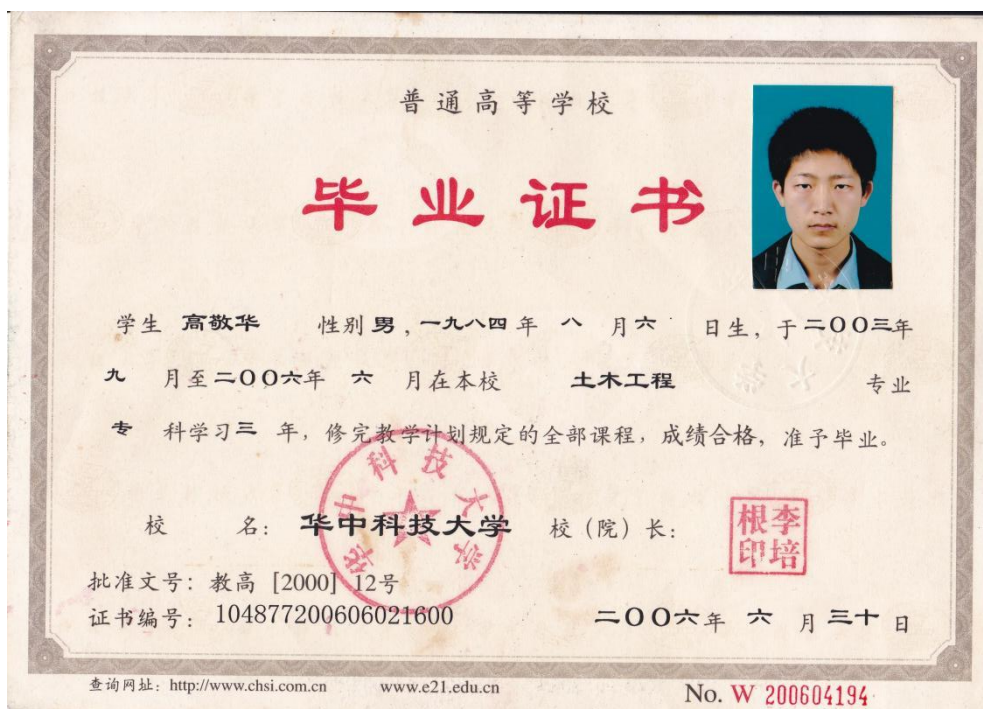 普通高等学校
毕业证书
学生 高敬华 性别 男，一九八四年 八 月 六 日生，于二〇〇三年
九 月至二〇〇六年 六 月在本校 土木工程 专业
专 科学习三 年，修完教学计划规定的全部课程，成绩合格，准予毕业。
华中科技大学
校 名：华中科技大学 校（院）长：
李培根印
批准文号：教高 [2000] 12号
证书编号：104877200606021600
二〇〇六年 六 月 三十 日
查询网址：http://www.chsi.com.cn www.e21.edu.cn
No. W 200604194